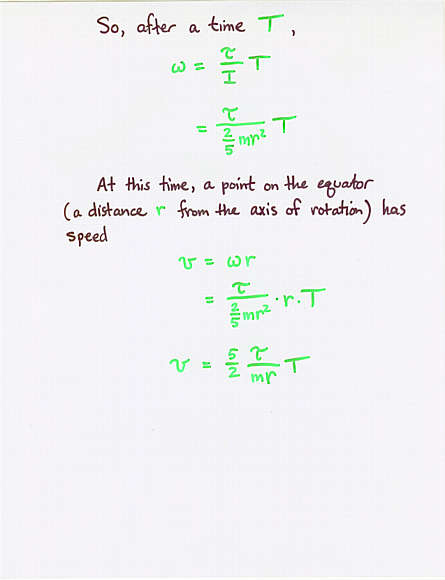 So, after a time T,
ω = τ/I T
= τ/(2/5 mr²) T
At this time, a point on the equator
(a distance r from the axis of rotation) has
speed
v = ωr
= τ/(2/5 mr²) · r · T
v = 5/2 τ/(mr) T